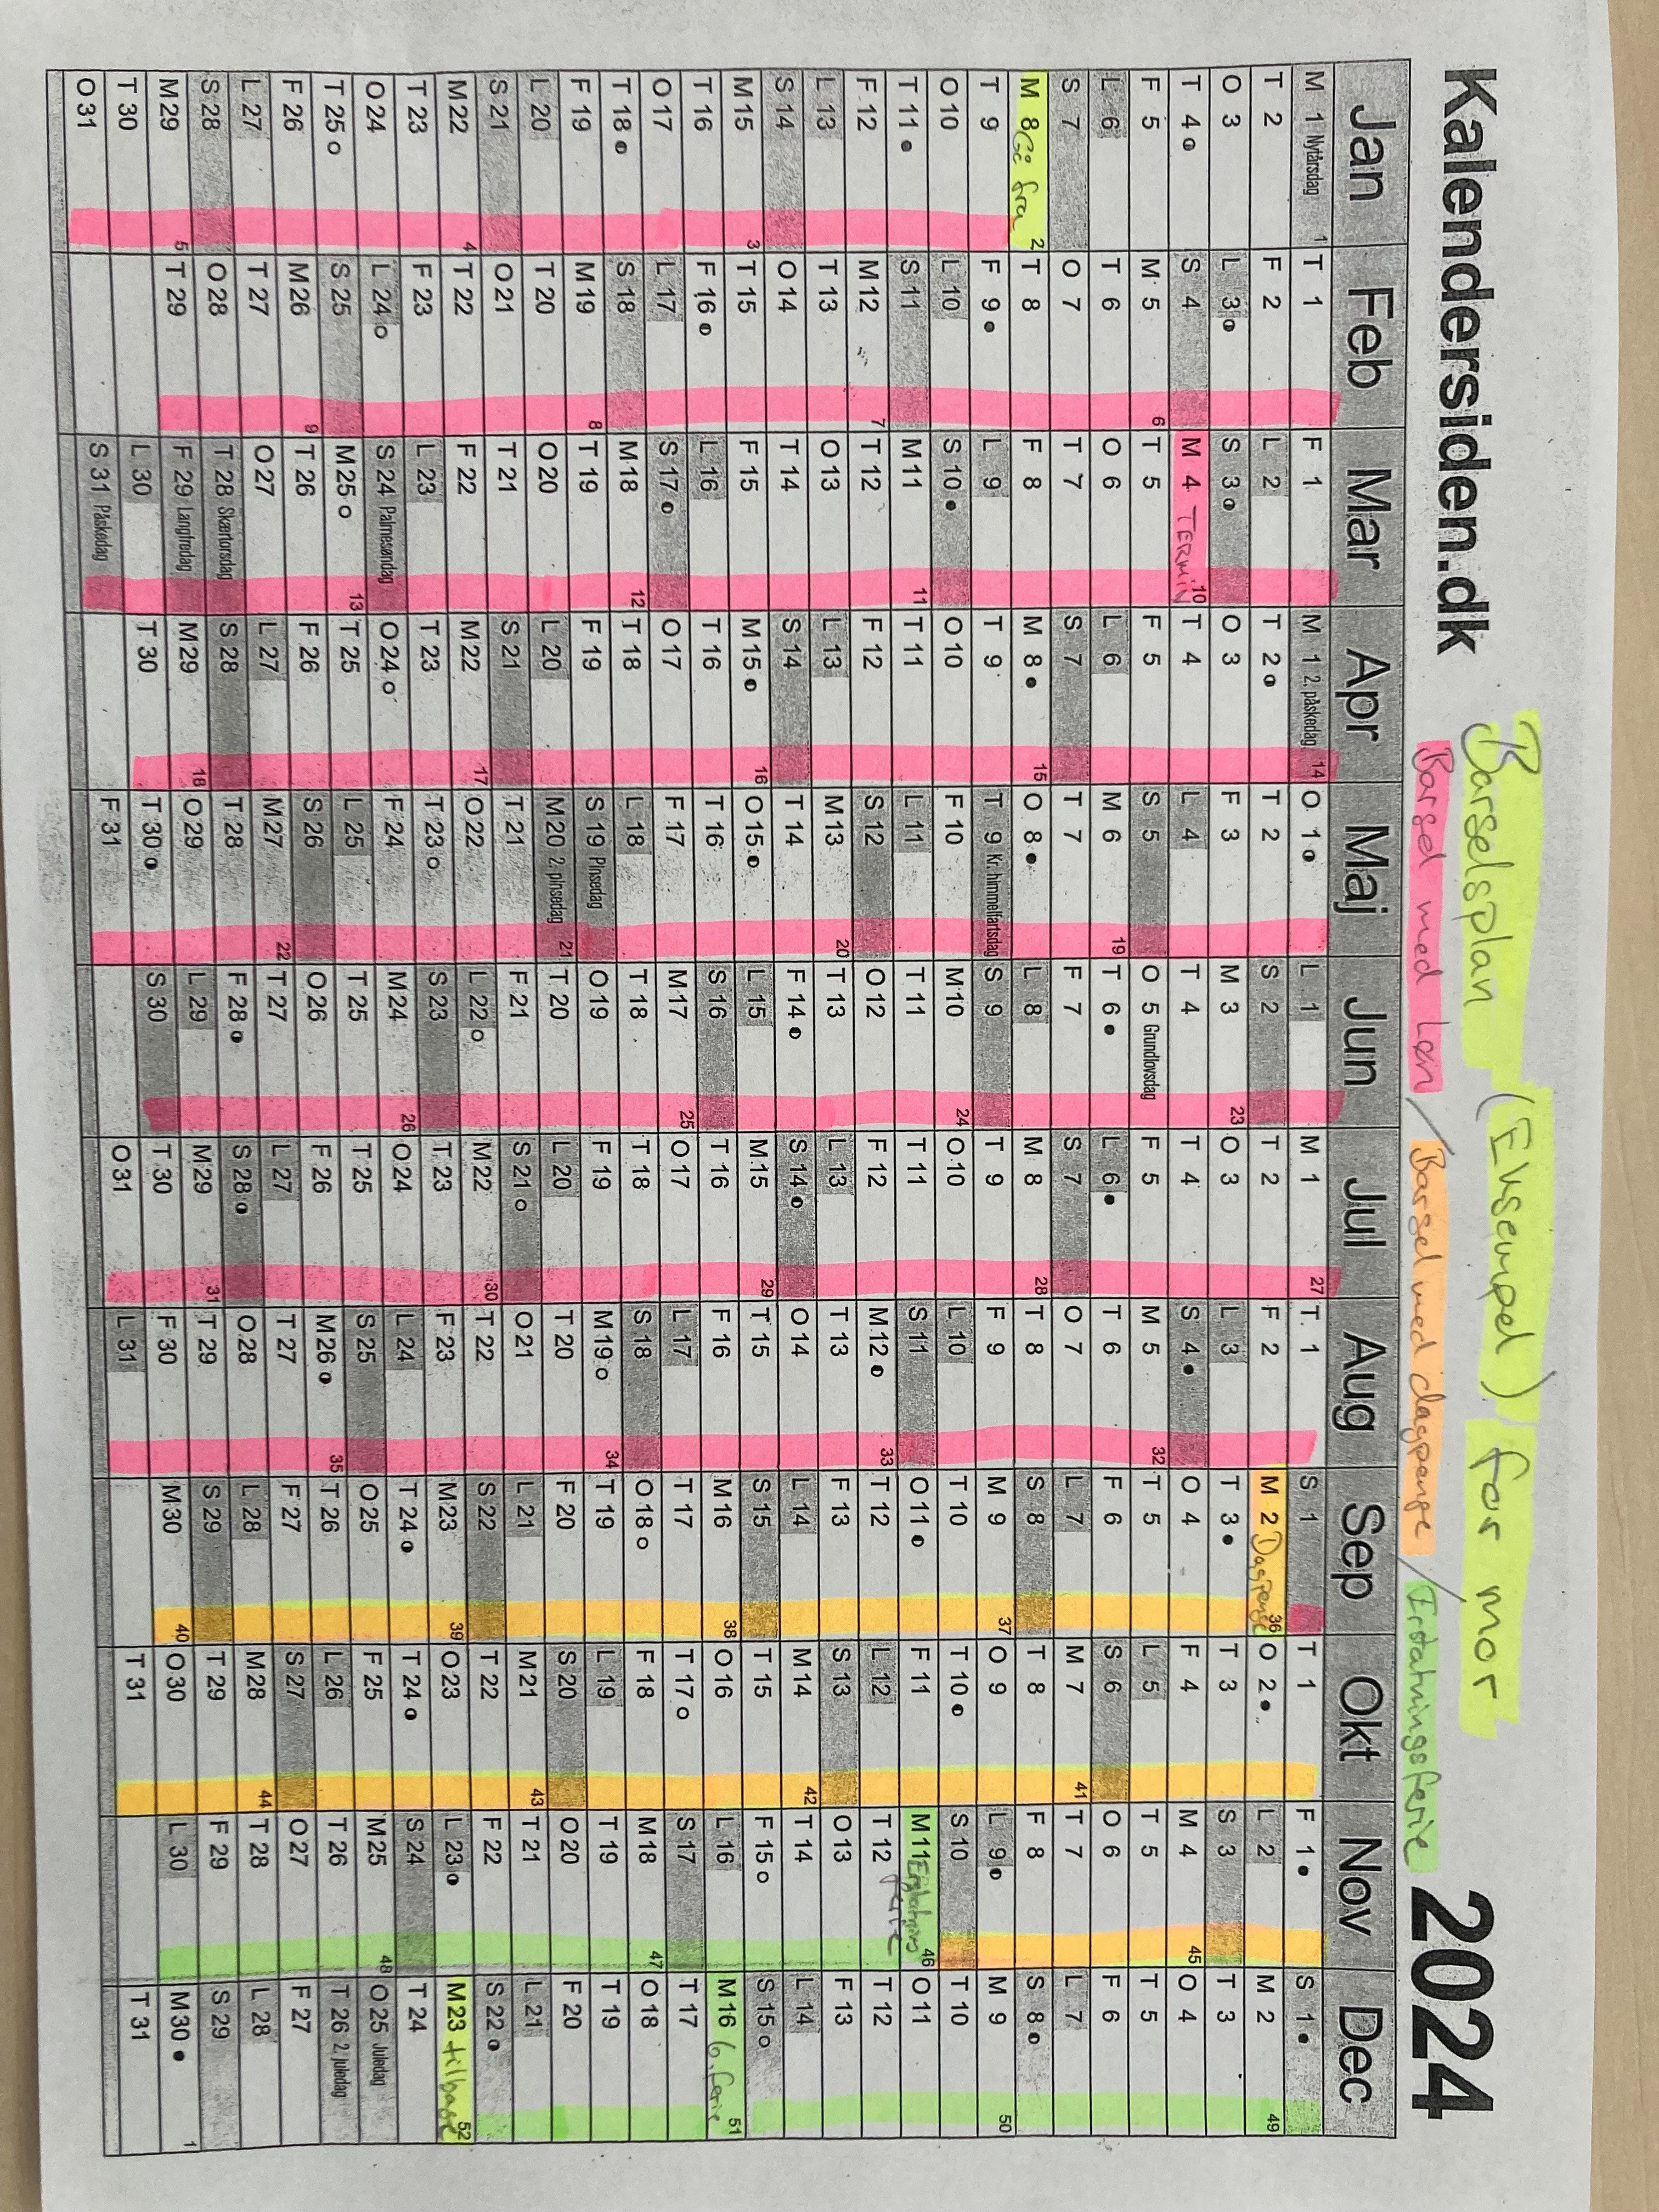 Kalendersiden.dk
Barselsplan (Eksempel) for mor
Barsel med Løn / Barsel med dagpenge / Erstatningsferie
2024
Jan Feb Mar Apr Maj Jun Jul Aug Sep Okt Nov Dec
M 1 Nytårsdag 1 T 1 F 1 M 1 2. påskedag 14 O 1 L 1 M 1 27 T 1 S 1 T 1 F 1 S 1
T 2 F 2 L 2 T 2 T 2 S 2 T 2 F 2 M 2 Dagpenge 36 O 2 L 2 M 2 49
O 3 L 3 S 3 O 3 F 3 M 3 23 O 3 L 3 T 3 T 3 S 3 T 3
T 4 S 4 M 4 TERMIN 10 T 4 L 4 T 4 T 4 S 4 O 4 F 4 M 4 45 O 4
F 5 M 5 6 T 5 F 5 S 5 O 5 Grundlovsdag F 5 M 5 32 T 5 L 5 T 5 T 5
L 6 T 6 O 6 L 6 M 6 19 T 6 L 6 T 6 F 6 S 6 O 6 F 6
S 7 O 7 T 7 S 7 T 7 F 7 S 7 O 7 L 7 M 7 41 T 7 L 7
M 8 Gå fra 2 T 8 F 8 M 8 15 O 8 L 8 M 8 28 T 8 S 8 T 8 F 8 S 8
T 9 F 9 L 9 T 9 T 9 Kr. himmelfartsdag S 9 T 9 F 9 M 9 37 O 9 L 9 M 9 50
O 10 L 10 S 10 O 10 F 10 M 10 24 O 10 L 10 T 10 T 10 S 10 T 10
T 11 S 11 M 11 11 T 11 L 11 T 11 T 11 S 11 O 11 F 11 M 11 Erstatnings 46 O 11
F 12 M 12 7 T 12 F 12 S 12 O 12 F 12 M 12 33 T 12 L 12 T 12 ferie T 12
L 13 T 13 O 13 L 13 M 13 20 T 13 L 13 T 13 F 13 S 13 O 13 F 13
S 14 O 14 T 14 S 14 T 14 F 14 S 14 O 14 L 14 M 14 42 T 14 L 14
M 15 3 T 15 F 15 M 15 16 O 15 L 15 M 15 29 T 15 S 15 T 15 F 15 S 15
T 16 F 16 L 16 T 16 T 16 S 16 T 16 F 16 M 16 38 O 16 L 16 M 16 6. ferie 51
O 17 L 17 S 17 O 17 F 17 M 17 25 O 17 L 17 T 17 T 17 S 17 T 17
T 18 S 18 M 18 12 T 18 L 18 T 18 T 18 S 18 O 18 F 18 M 18 47 O 18
F 19 M 19 8 T 19 F 19 S 19 Pinsedag O 19 F 19 M 19 34 T 19 L 19 T 19 T 19
L 20 T 20 O 20 L 20 M 20 2. pinsedag 21 T 20 L 20 T 20 F 20 S 20 O 20 F 20
S 21 O 21 T 21 S 21 T 21 F 21 S 21 O 21 L 21 M 21 43 T 21 L 21
M 22 4 T 22 F 22 M 22 17 O 22 L 22 M 22 30 T 22 S 22 T 22 F 22 S 22
T 23 F 23 L 23 T 23 T 23 S 23 T 23 F 23 M 23 39 O 23 L 23 M 23 tilbage 52
O 24 L 24 S 24 Palmesøndag O 24 F 24 M 24 26 O 24 L 24 T 24 T 24 S 24 T 24
T 25 S 25 M 25 13 T 25 L 25 T 25 T 25 S 25 O 25 F 25 M 25 48 O 25 Juledag
F 26 M 26 9 T 26 F 26 S 26 O 26 F 26 M 26 35 T 26 L 26 T 26 T 26 2. juledag
L 27 T 27 O 27 L 27 M 27 22 T 27 L 27 T 27 F 27 S 27 O 27 F 27
S 28 O 28 T 28 Skærtorsdag S 28 T 28 F 28 S 28 O 28 L 28 M 28 44 T 28 L 28
M 29 5 T 29 F 29 Langfredag M 29 18 O 29 L 29 M 29 31 T 29 S 29 T 29 F 29 S 29
T 30 L 30 T 30 T 30 S 30 T 30 F 30 M 30 40 O 30 L 30 M 30 1
O 31 S 31 Påskedag F 31 O 31 L 31 T 31 T 31